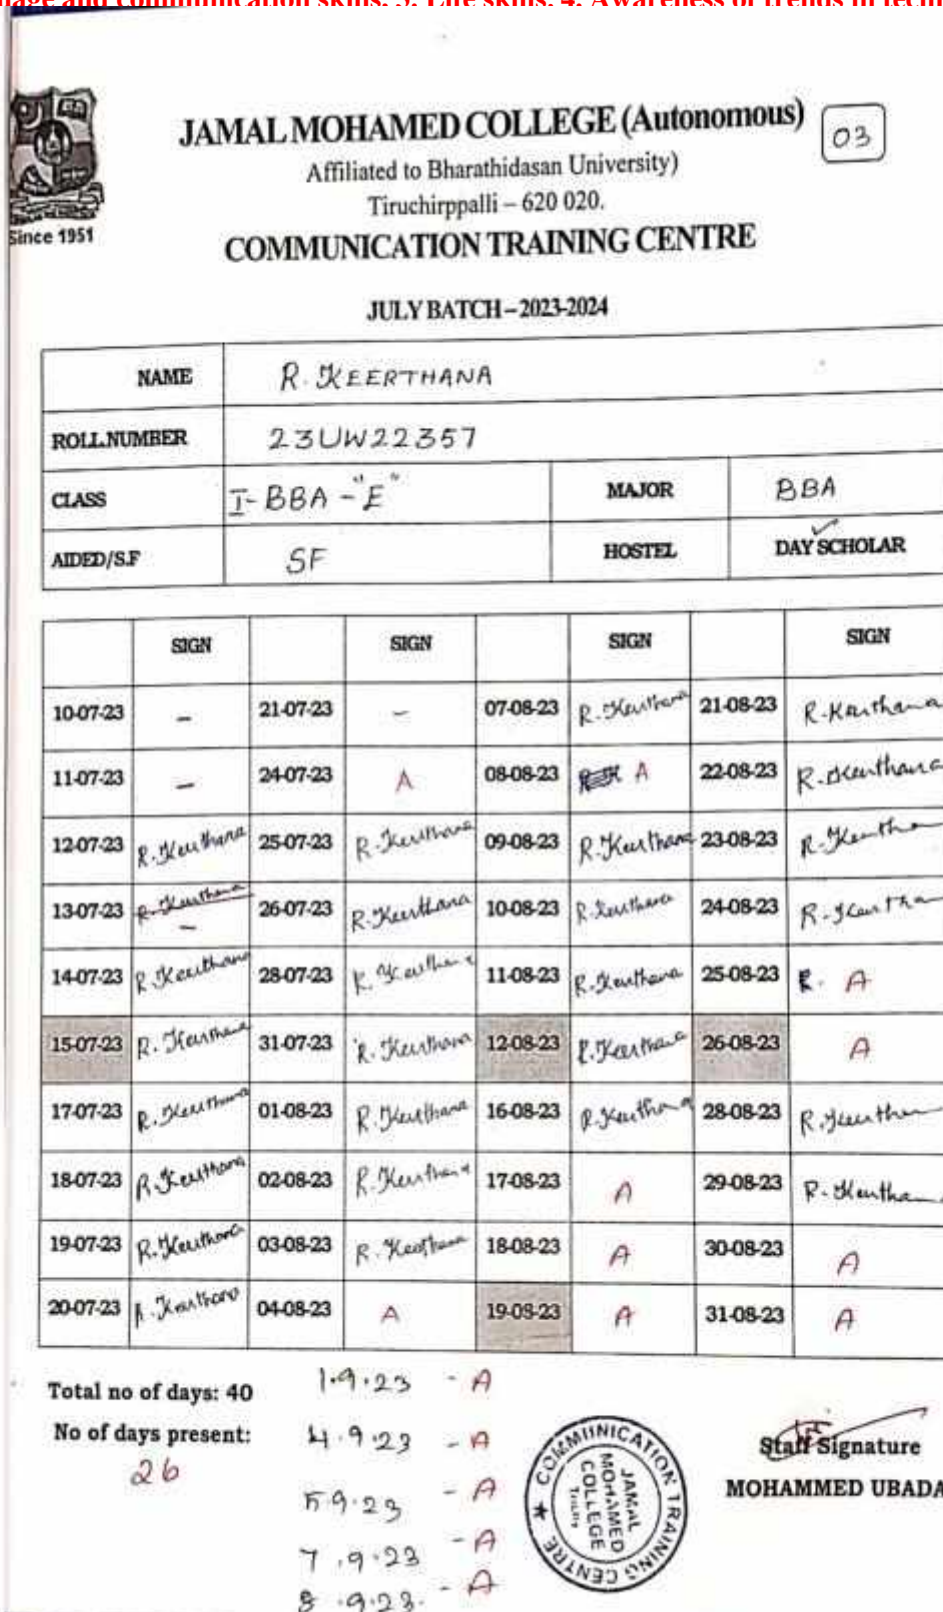 JAMAL MOHAMED COLLEGE (Autonomous)
03
Affiliated to Bharathidasan University)
Tiruchirppalli – 620 020.
Since 1951
COMMUNICATION TRAINING CENTRE
JULY BATCH – 2023-2024
NAME R. KEERTHANA
ROLL.NUMBER 23UW22357
CLASS I-BBA-"E" MAJOR BBA
AIDED/S.F SF HOSTEL DAY SCHOLAR
SIGN SIGN SIGN SIGN
10-07-23 – 21-07-23 – 07-08-23 R. Keerthana 21-08-23 R. Keerthana
11-07-23 – 24-07-23 A 08-08-23 A 22-08-23 R. Keerthana
12-07-23 R. Keerthana 25-07-23 R. Keerthana 09-08-23 R. Keerthana 23-08-23 R. Keertha
13-07-23 R. Keerthana – 26-07-23 R. Keerthana 10-08-23 R. Keerthana 24-08-23 R. Keertha
14-07-23 R. Keerthana 28-07-23 R. Keerthana 11-08-23 R. Keerthana 25-08-23 R. A
15-07-23 R. Keerthana 31-07-23 R. Keerthana 12-08-23 R. Keerthana 26-08-23 A
17-07-23 R. Keerthana 01-08-23 R. Keerthana 16-08-23 R. Keerthana 28-08-23 R. Keertha
18-07-23 R. Keerthana 02-08-23 R. Keerthana 17-08-23 A 29-08-23 R. Keertha
19-07-23 R. Keerthana 03-08-23 R. Keerthana 18-08-23 A 30-08-23 A
20-07-23 R. Keerthana 04-08-23 A 19-08-23 A 31-08-23 A
Total no of days: 40
No of days present:
26
1.9.23 - A
4.9.23 - A
5.9.23 - A
7.9.23 - A
8.9.23. - A
COMMUNICATION TRAINING CENTRE
JAMAL
MOHAMED
COLLEGE
Staff Signature
MOHAMMED UBADA